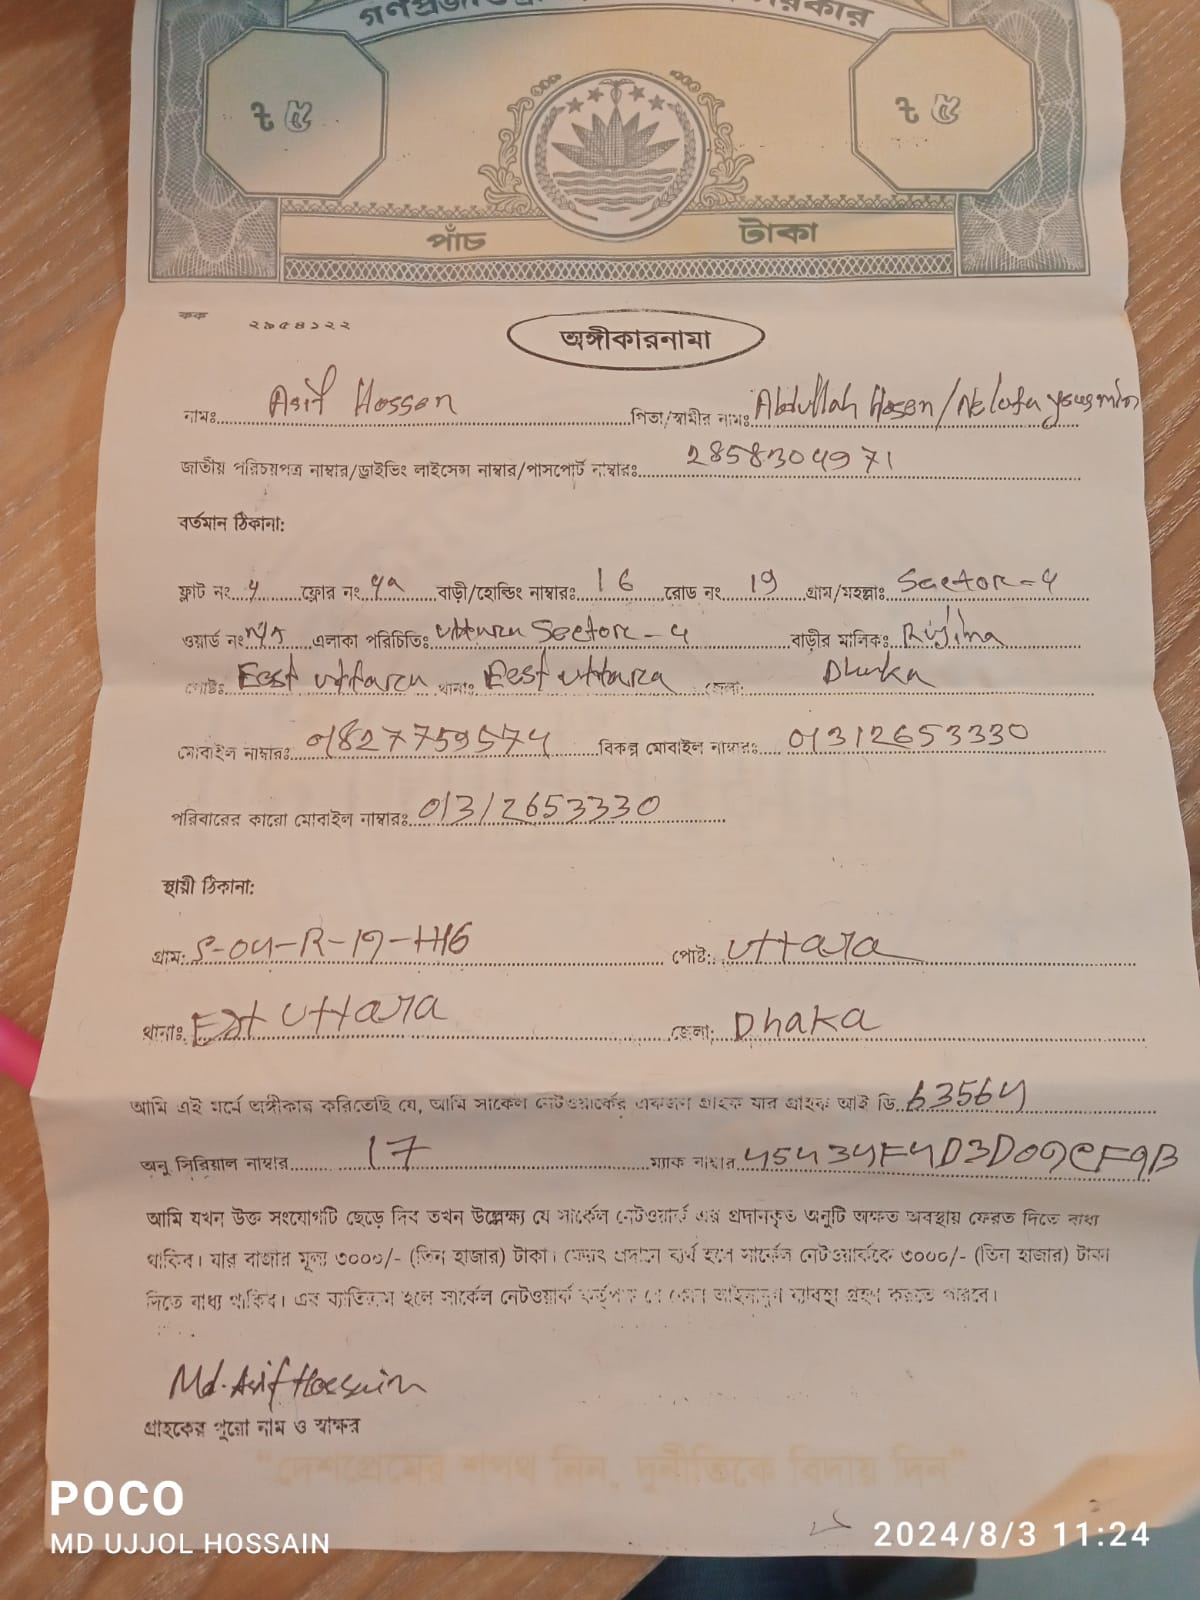 ৳ ৫ ৳ ৫
পাঁচ টাকা
কক ২৯৫৪১২২
অঙ্গীকারনামা
নামঃ Asif Hossen পিতা/স্বামীর নামঃ Abdullah Hosen/Nelufa yousmin
জাতীয় পরিচয়পত্র নাম্বার/ড্রাইভিং লাইসেন্স নাম্বার/পাসপোর্ট নাম্বারঃ 2858304971
বর্তমান ঠিকানা:
ফ্লাট নং 4 ফ্লোর নং 4a বাড়ী/হোল্ডিং নাম্বারঃ 16 রোড নং 19 গ্রাম/মহল্লাঃ Sector-4
ওয়ার্ড নং N/A এলাকা পরিচিতিঃ uttura Sector-4 বাড়ীর মালিকঃ Rujina
পোষ্টঃ Eest uttara থানাঃ Eest uttara জেলা: Dhaka
মোবাইল নাম্বারঃ 01827759574 বিকল্প মোবাইল নাম্বারঃ 01312653330
পরিবারের কারো মোবাইল নাম্বারঃ 01312653330
স্থায়ী ঠিকানা:
গ্রাম: S-04-R-19-H16 পোষ্ট: Uttara
থানাঃ Est Uttara জেলা: Dhaka
আমি এই মর্মে অঙ্গীকার করিতেছি যে, আমি সার্কেল নেটওয়ার্কের একজন গ্রাহক যার গ্রাহক আই ডি 63564
অনু সিরিয়াল নাম্বার 17 ম্যাক নাম্বার 45434F4D3D09CF9B
আমি যখন উক্ত সংযোগটি ছেড়ে দিব তখন উল্লেক্ষ্য যে সার্কেল নেটওয়ার্ক এর প্রদানকৃত অনুটি অক্ষত অবস্থায় ফেরত দিতে বাধ্য
থাকিব। যার বাজার মূল্য ৩০০০/- (তিন হাজার) টাকা। ফেরৎ প্রদানে ব্যর্থ হলে সার্কেল নেটওয়ার্ককে ৩০০০/- (তিন হাজার) টাকা
দিতে বাধ্য থাকিব। এর ব্যতিক্রম হলে সার্কেল নেটওয়ার্ক কর্তৃপক্ষ যে কোন আইনানুগ ব্যাবস্থা গ্রহণ করতে পারবে।
Md. Asif Hossain
গ্রাহকের পুরো নাম ও স্বাক্ষর
“দেশপ্রেমের শপথ নিন, দুর্নীতিকে বিদায় দিন”
POCO
MD UJJOL HOSSAIN 2024/8/3 11:24